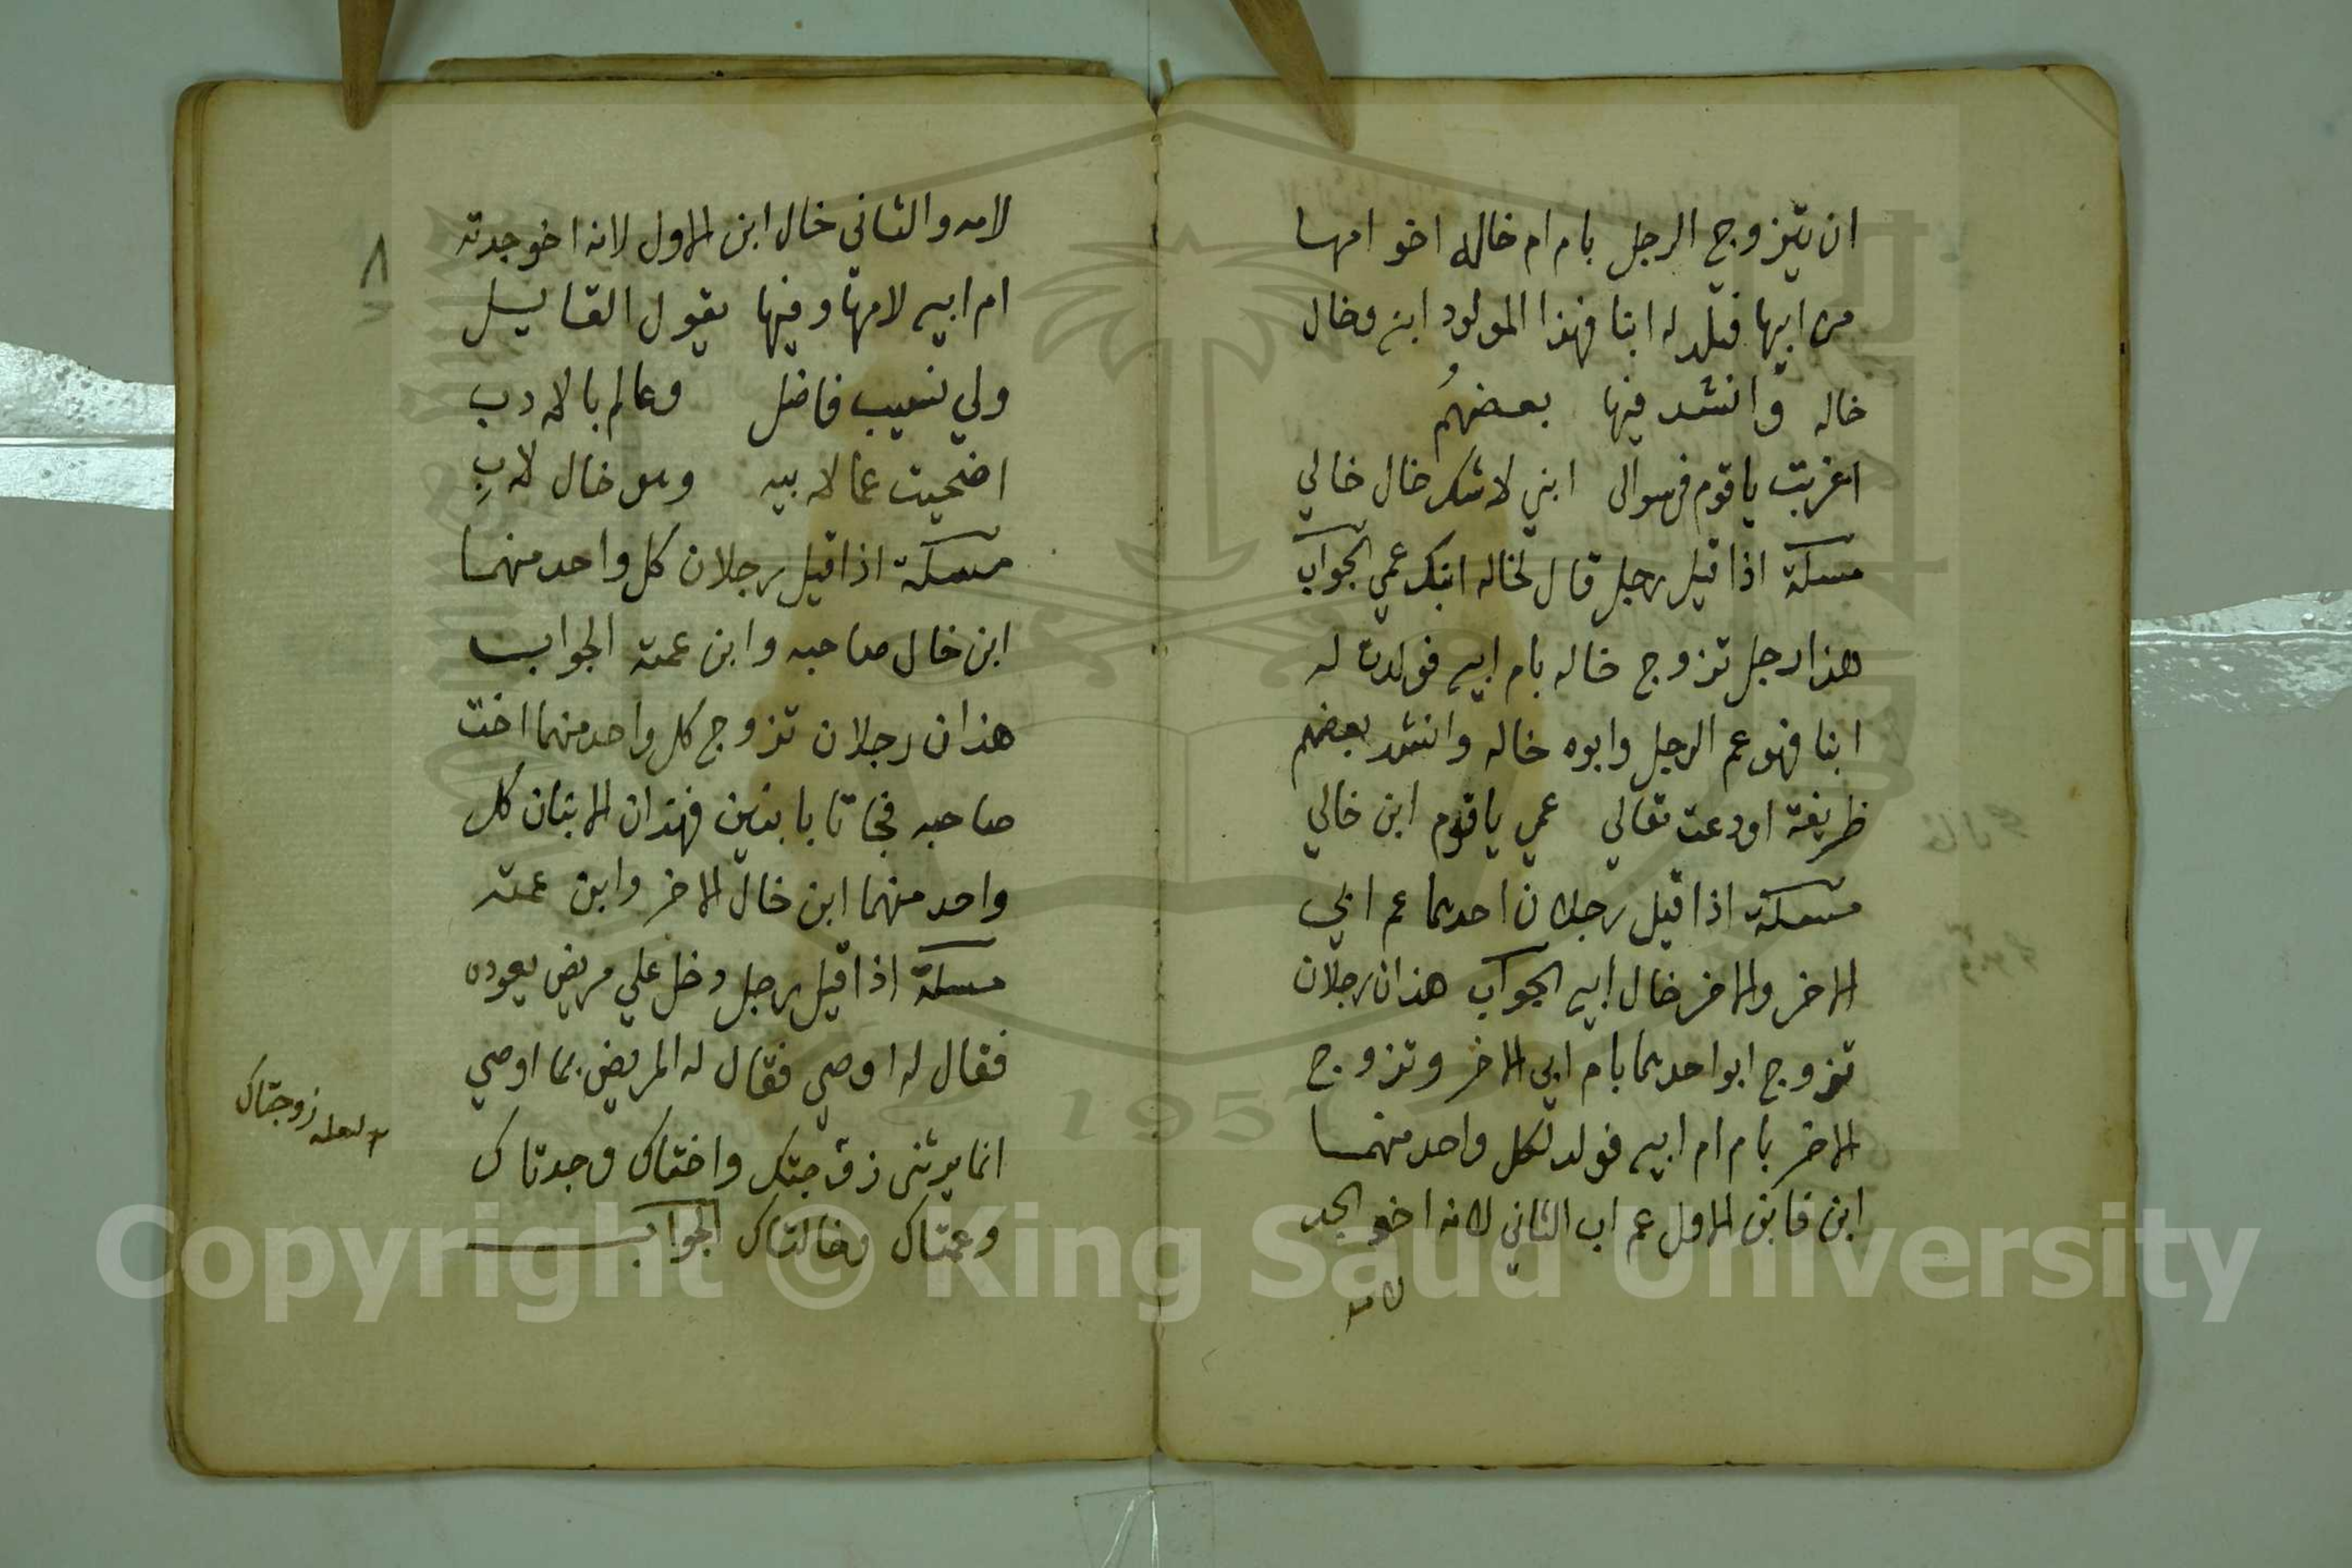 ان يتزوج الرجل بام ام خاله اخو امها
من ابيها فتلد له ابنا فهذا المولود ابنه وخال
خاله وانشد فيها بعضهُم
اغربت ياقوم في سوالى ابني لاشك خال خالي
مسلة اذا قيل رجل قال لخاله ابنك عمي الجواب
هذا رجل تزوج خاله بام ابيه فولدت له
ابنا فهو عم الرجل وابوه خاله وانشد بعضهم
ظريفة اودعت مقالي عمي ياقوم ابن خالي
مسلة اذا قيل رجلان احدهما عم ابي
الاخر والاخر خال ابيه الجواب هذان رجلان
تزوج ابو احدهما بام ابي الاخر وتزوج
الاخر بام ام ابيه فولد لكل واحد منهما
ابن فابن الاول عم اب الثاني لانه اخو الجد
لامه
٨
لامه والثانى خال ابن الاول لانه اخو جدته
ام ابيه لامها وفيها يقول القايل
ولي نسيب فاضل وعالم بالادب
اضحيت عما لابيه وهو خال لابِ
مسلة اذا قيل رجلان كل واحد منهما
ابن خال صاحبه وابن عمته الجواب
هذان رجلان تزوج كل واحد منهما اخت
صاحبه فجاتا بابنين فهذان الابنان كل
واحد منهما ابن خال الاخر وابن عمته
مسلة اذا قيل رجل دخل علي مريض يعوده
فقال له اوصي فقال له المريض بما اوصي
انما يرثنى زوجتك واختاك وجدتاك
وعمتاك وخالتاك الجواب
لعله زوجتاك
Copyright © King Saud University
1957